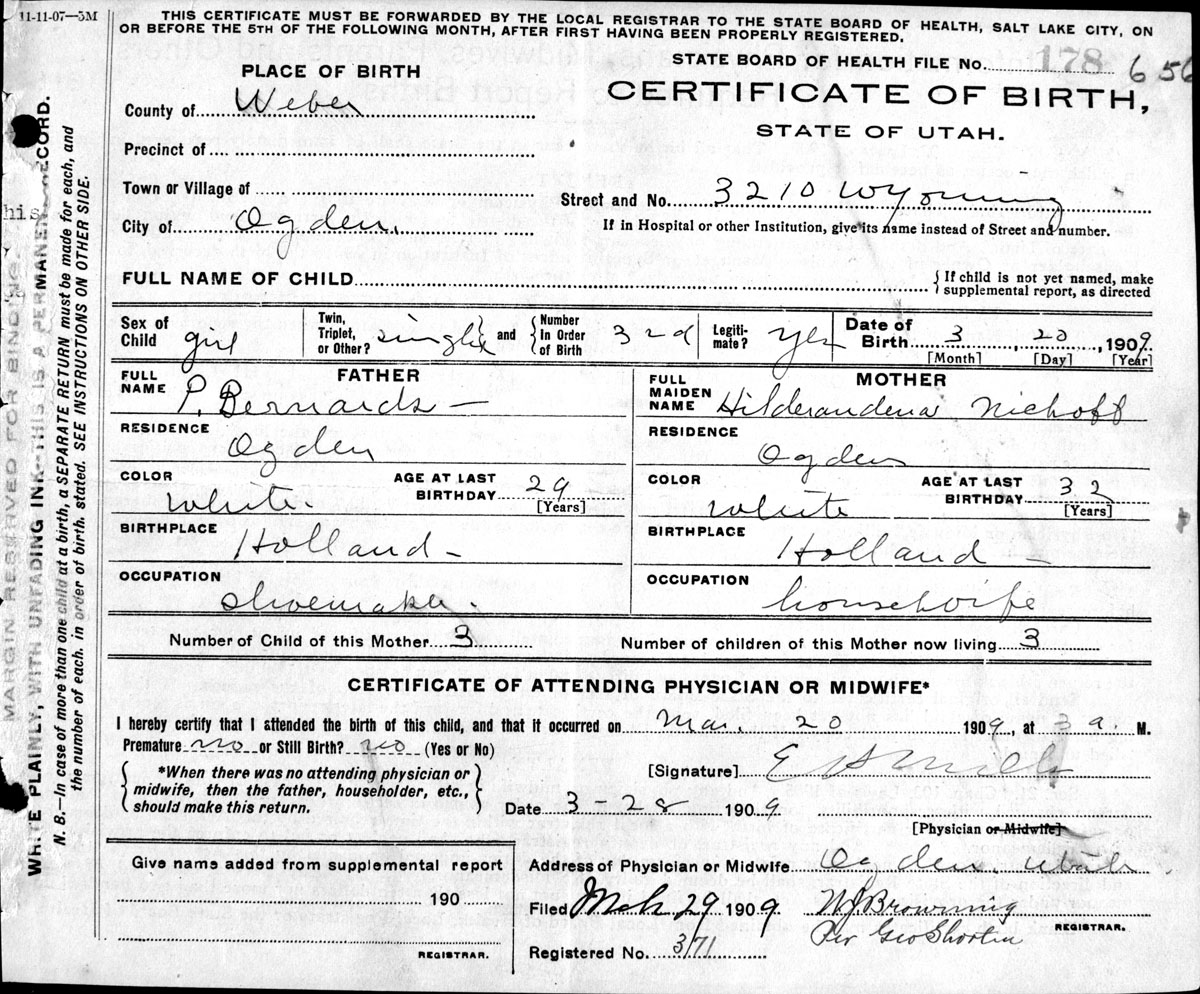 11-11-07—5M
THIS CERTIFICATE MUST BE FORWARDED BY THE LOCAL REGISTRAR TO THE STATE BOARD OF HEALTH, SALT LAKE CITY, ON
OR BEFORE THE 5TH OF THE FOLLOWING MONTH, AFTER FIRST HAVING BEEN PROPERLY REGISTERED.
STATE BOARD OF HEALTH FILE No. 178 656
PLACE OF BIRTH
CERTIFICATE OF BIRTH,
STATE OF UTAH.
County of Weber
Precinct of
Town or Village of
Street and No. 3210 Wyoming
City of Ogden.
If in Hospital or other Institution, give its name instead of Street and number.
FULL NAME OF CHILD
If child is not yet named, make
supplemental report, as directed
Sex of Child girl Twin, Triplet, or Other? single and Number In Order of Birth 3rd Legitimate? Yes Date of Birth 3, 20, 1909
[Month] [Day] [Year]
FATHER
FULL NAME P. Bernards —
RESIDENCE
Ogden
COLOR White. AGE AT LAST BIRTHDAY 29 [Years]
BIRTHPLACE
Holland —
OCCUPATION
Shoemaker.
MOTHER
FULL MAIDEN NAME Niehoff
RESIDENCE
Ogden
COLOR White AGE AT LAST BIRTHDAY 32 [Years]
BIRTHPLACE
Holland —
OCCUPATION
housewife
Number of Child of this Mother 3 Number of children of this Mother now living 3
CERTIFICATE OF ATTENDING PHYSICIAN OR MIDWIFE*
I hereby certify that I attended the birth of this child, and that it occurred on Mar. 20 1909, at 3 a. M.
Premature no or Still Birth? no (Yes or No)
*When there was no attending physician or
midwife, then the father, householder, etc.,
should make this return.
[Signature]
Date 3-28 1909
[Physician or Midwife]
Give name added from supplemental report
190
REGISTRAR.
Address of Physician or Midwife Ogden, Utah
Filed Mch 29 1909 W J Browning
Per Geo Shorten REGISTRAR.
Registered No. 371
MARGIN RESERVED FOR BINDING.
WRITE PLAINLY, WITH UNFADING INK—THIS IS A PERMANENT RECORD.
N. B.—In case of more than one child at a birth, a SEPARATE RETURN must be made for each, and
the number of each, in order of birth, stated. SEE INSTRUCTIONS ON OTHER SIDE.
his